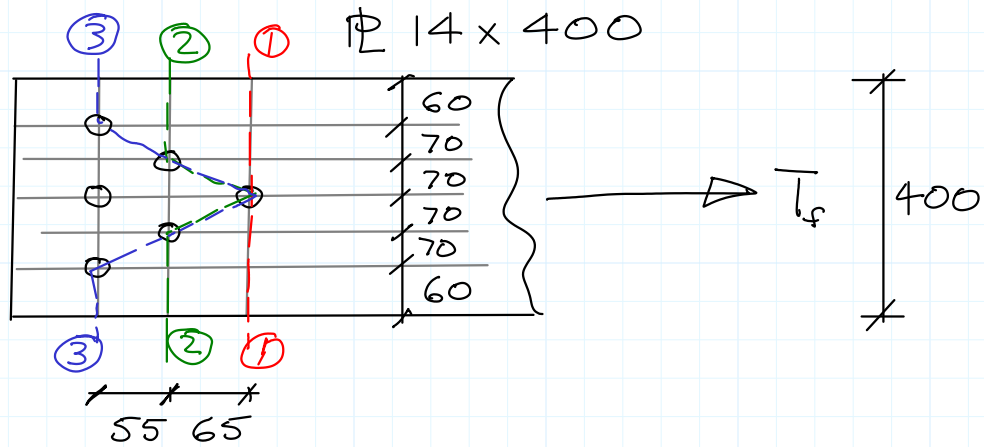 3 2 1 PL 14 x 400
60
70
70
70
70
60
Tf
400
3 2 1
55 65